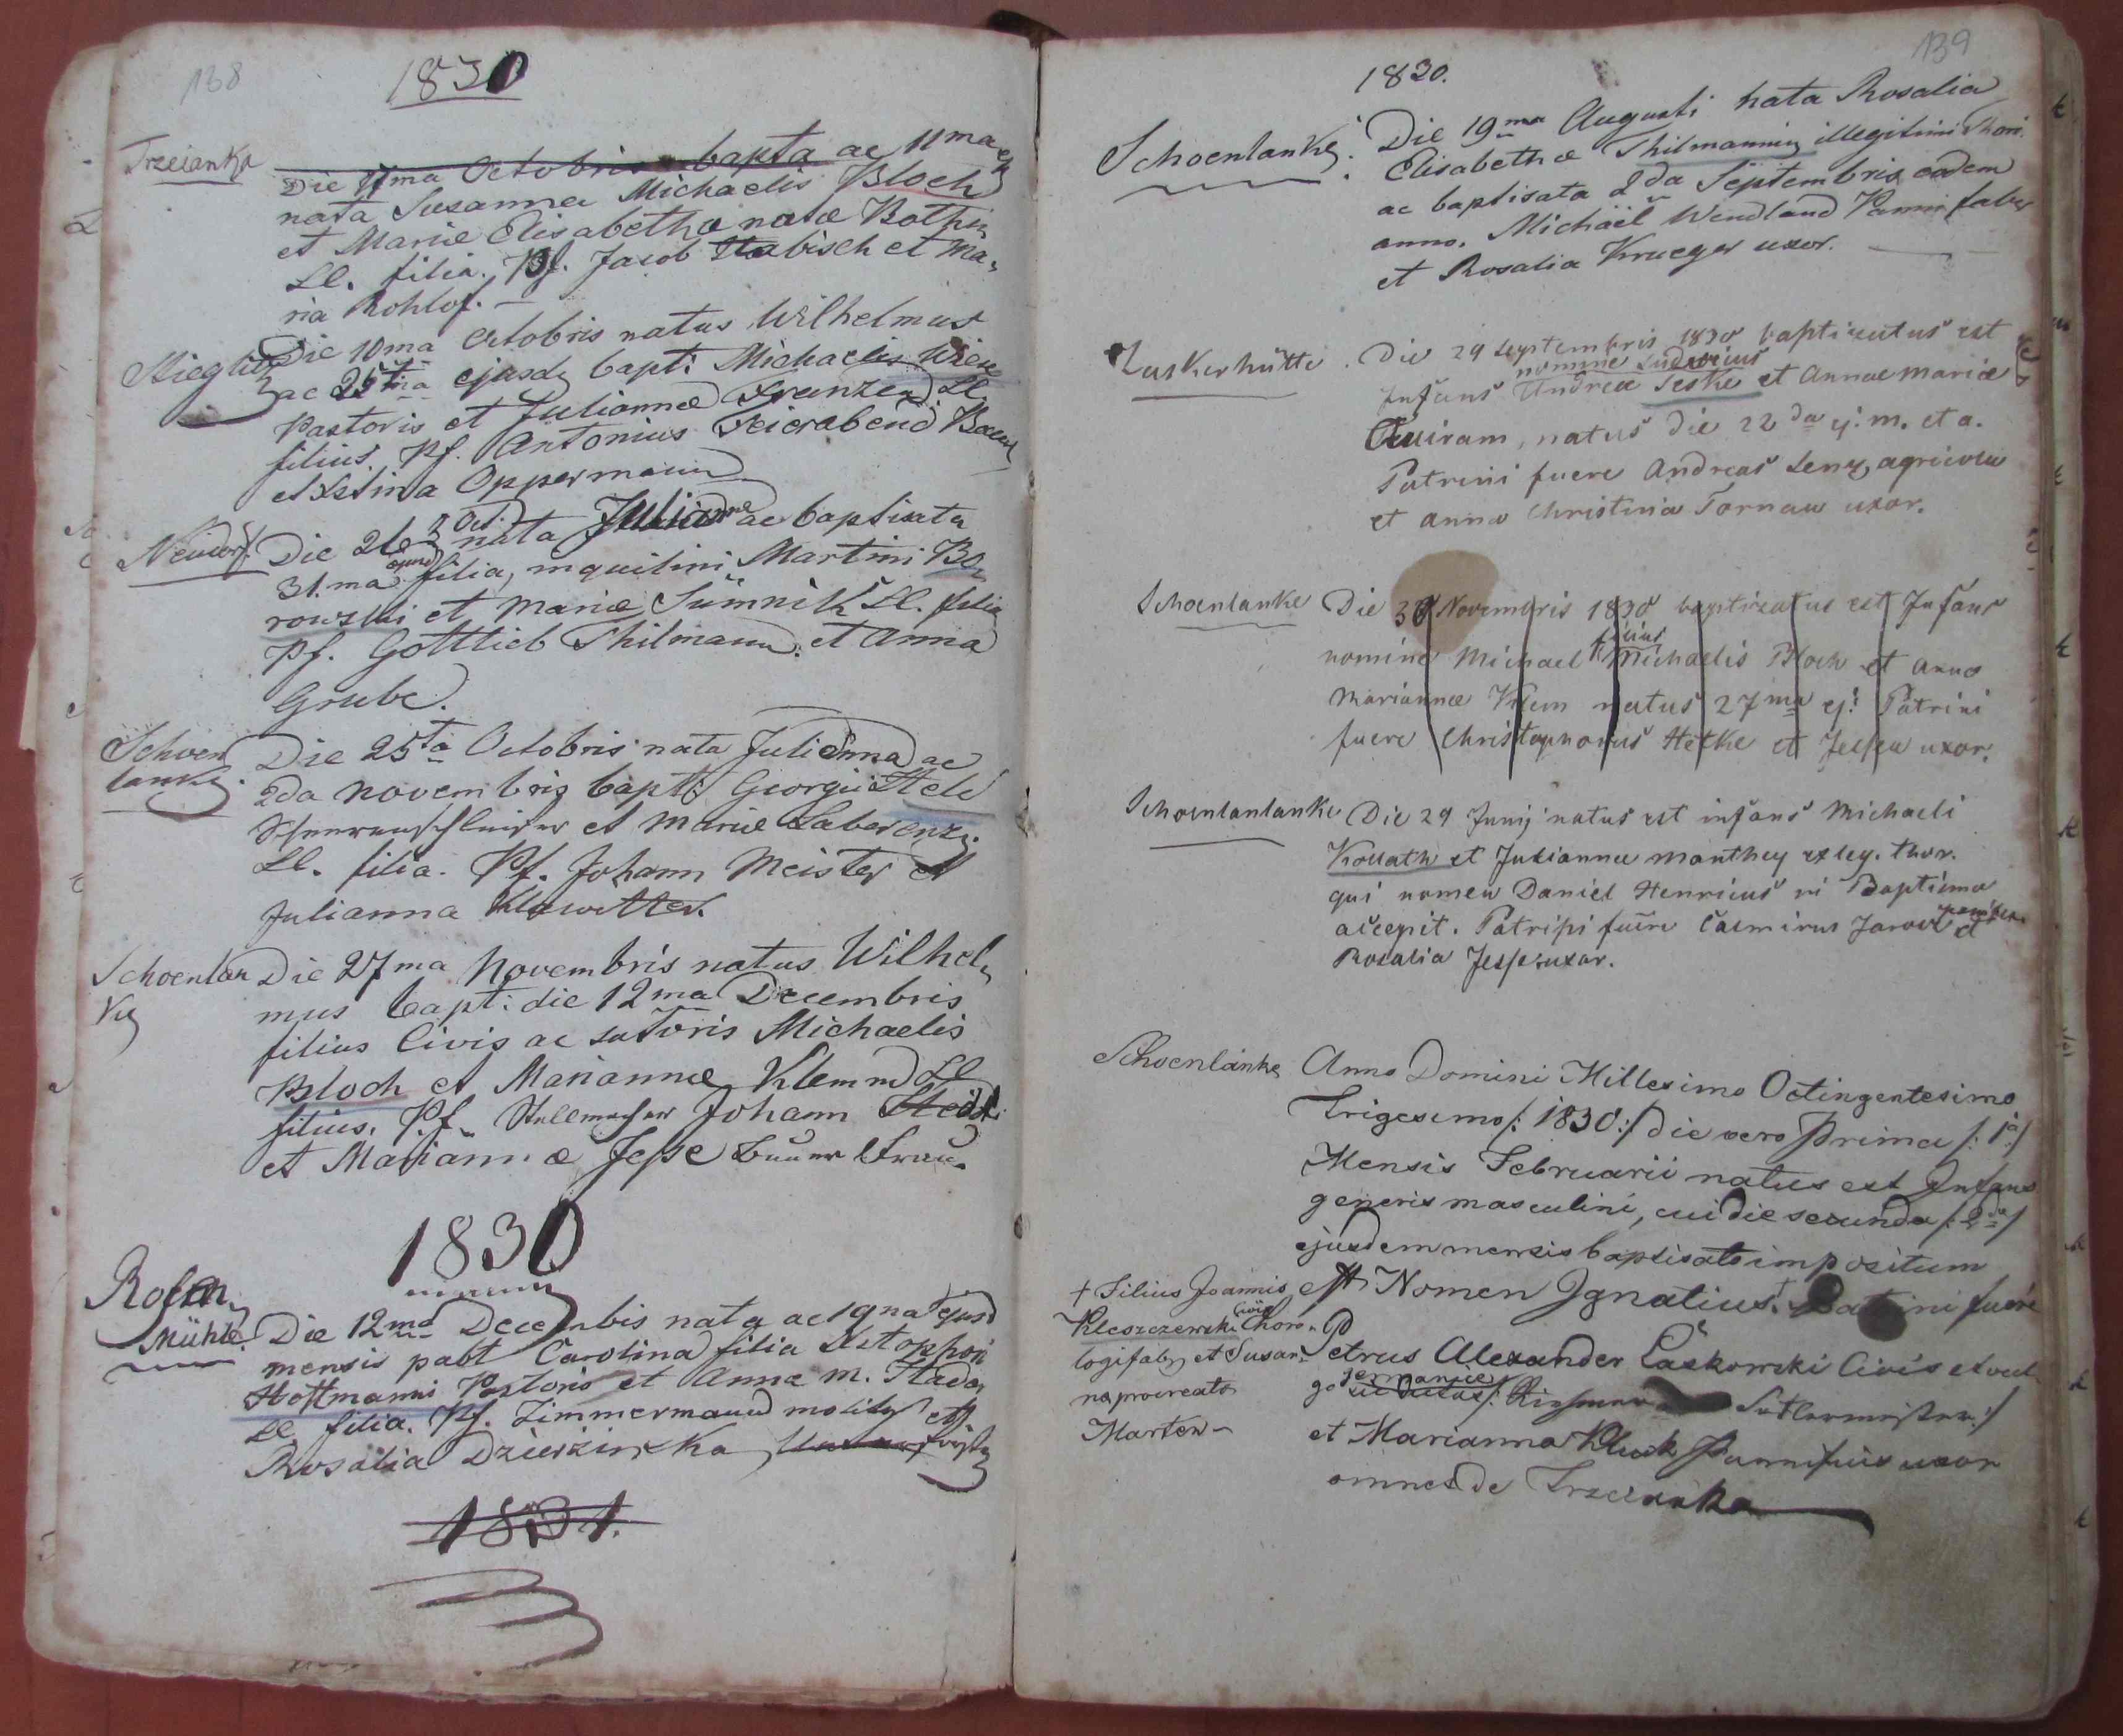 138
1830
Trzcianka
Die 11ma Octobris bapta ac 11ma ej
nata Susanna Michaelis Bloch
et Mariæ Elisabethæ natæ Bothin
LL. filia. Pf. Jacob Stabisch et Ma-
ria Rohlof.
Stieglitz
Die 10ma Octobris natus Wilhelmus
ac 25ta ejusd. bapt: Michaelis Wiese
Pastoris et Juliannæ Frenzen LL
filius. Pf. Antonius Feierabend
et Xstina Oppermann
Neudorf
Die 26 Oct. nata Julianna ac baptisata
31.ma ejusd filia, inquilini Martini Bo-
rowski et Mariæ Sümnik LL. filia
Pf. Gottlieb Thilmann. et Anna
Grube.
Schoen
lanke.
Die 25ta Octobris nata Julianna ac
2da Novembris bapt: Georgii
Scheerenschleifer et Mariæ Laberenz.
LL. filia. Pf. Johann Meister et
Julianna Klawitter.
Schoenlan
ke
Die 27ma Novembris natus Wilhel-
mus bapt: die 12ma Decembris
filius Civis ac sutoris Michaelis
Bloch et Mariannæ Klemm LL
filius. Pf. Stellmacher Johann
et Mariannæ Jesse Bauer Frau.
1830
Rosen
Mühle.
Die 12ma Decembis nata ac 19na ejusd
mensis pabt Carolina filia Xstophori
Hoffmanni Pastoris et Anna m.
LL filia. Pf. Zimmermann molitor et
Rosalia Dzierzinska
1831.
139
1830.
Schoenlanke.
Die 19ma Augusti nata Rosalia
Elisabethæ Thilmannin illegitimi Thori
ac baptisata 2da Septembris eodem
anno. Michael Wendland Panni faber
et Rosalia Krueger uxor.
Laskerhütte
Die 29 Septembris 1830 baptisatus est
nomine Ludovicus
Infans Andreæ Jeske et Annæ Mariæ
Quiram, natus die 22da ej. m. et a.
Patrini fuere Andreas Lenz, agricola
et Anna Christina Tornau uxor.
Schoenlanke
Die 30 Novembris 1830 baptisatus est Infans
filius
nomine Michael Michaelis Bloch et Annæ
Mariannæ Klem natus 27ma ej: Patrini
fuere Christophorus Hetke et Jesse uxor.
Schoenlanlanke
Die 29 Junij natus est infans Michaeli
Kollath et Julianna Manthey ex leg. thor.
qui nomen Daniel Henricus in Baptismo
accepit. Patrini fuere Casmirus et
Rosalia Jesse uxor.
Schoenlanke
Anno Domini Millesimo Octingentesimo
Trigesimo /: 1830 :/ die vero Prima /: 1a :/
Mensis Februarii natus est Infans
generis masculini, cui die secunda /: 2da /
ejusdem mensis baptisato impositum
est Nomen Ignatius. † Patrini fuere
+ Filius Joannis
Civis
Kleszczewski Horo-
logifabr et Susan-
na procreatæ
Marten -
Petrus Alexander Laskowski Civis et vul
germanice
go /: Riehmer Sattlermeister :/
et Marianna Kluck Pannificis uxor
omnes de Trzcianka